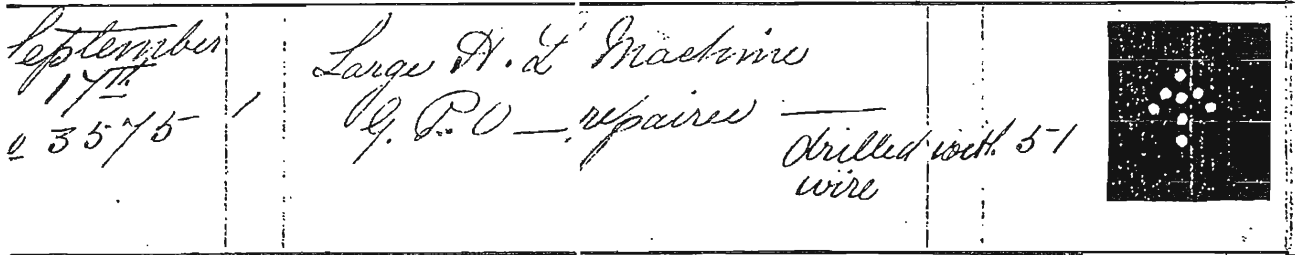 September
17th
o 3575
1
Large H. L Machine
G. P. O — repaired —
drilled with 51
wire